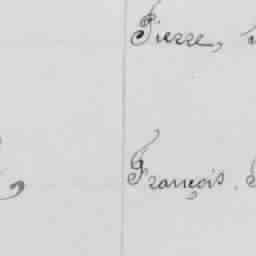 Pierre,
François.